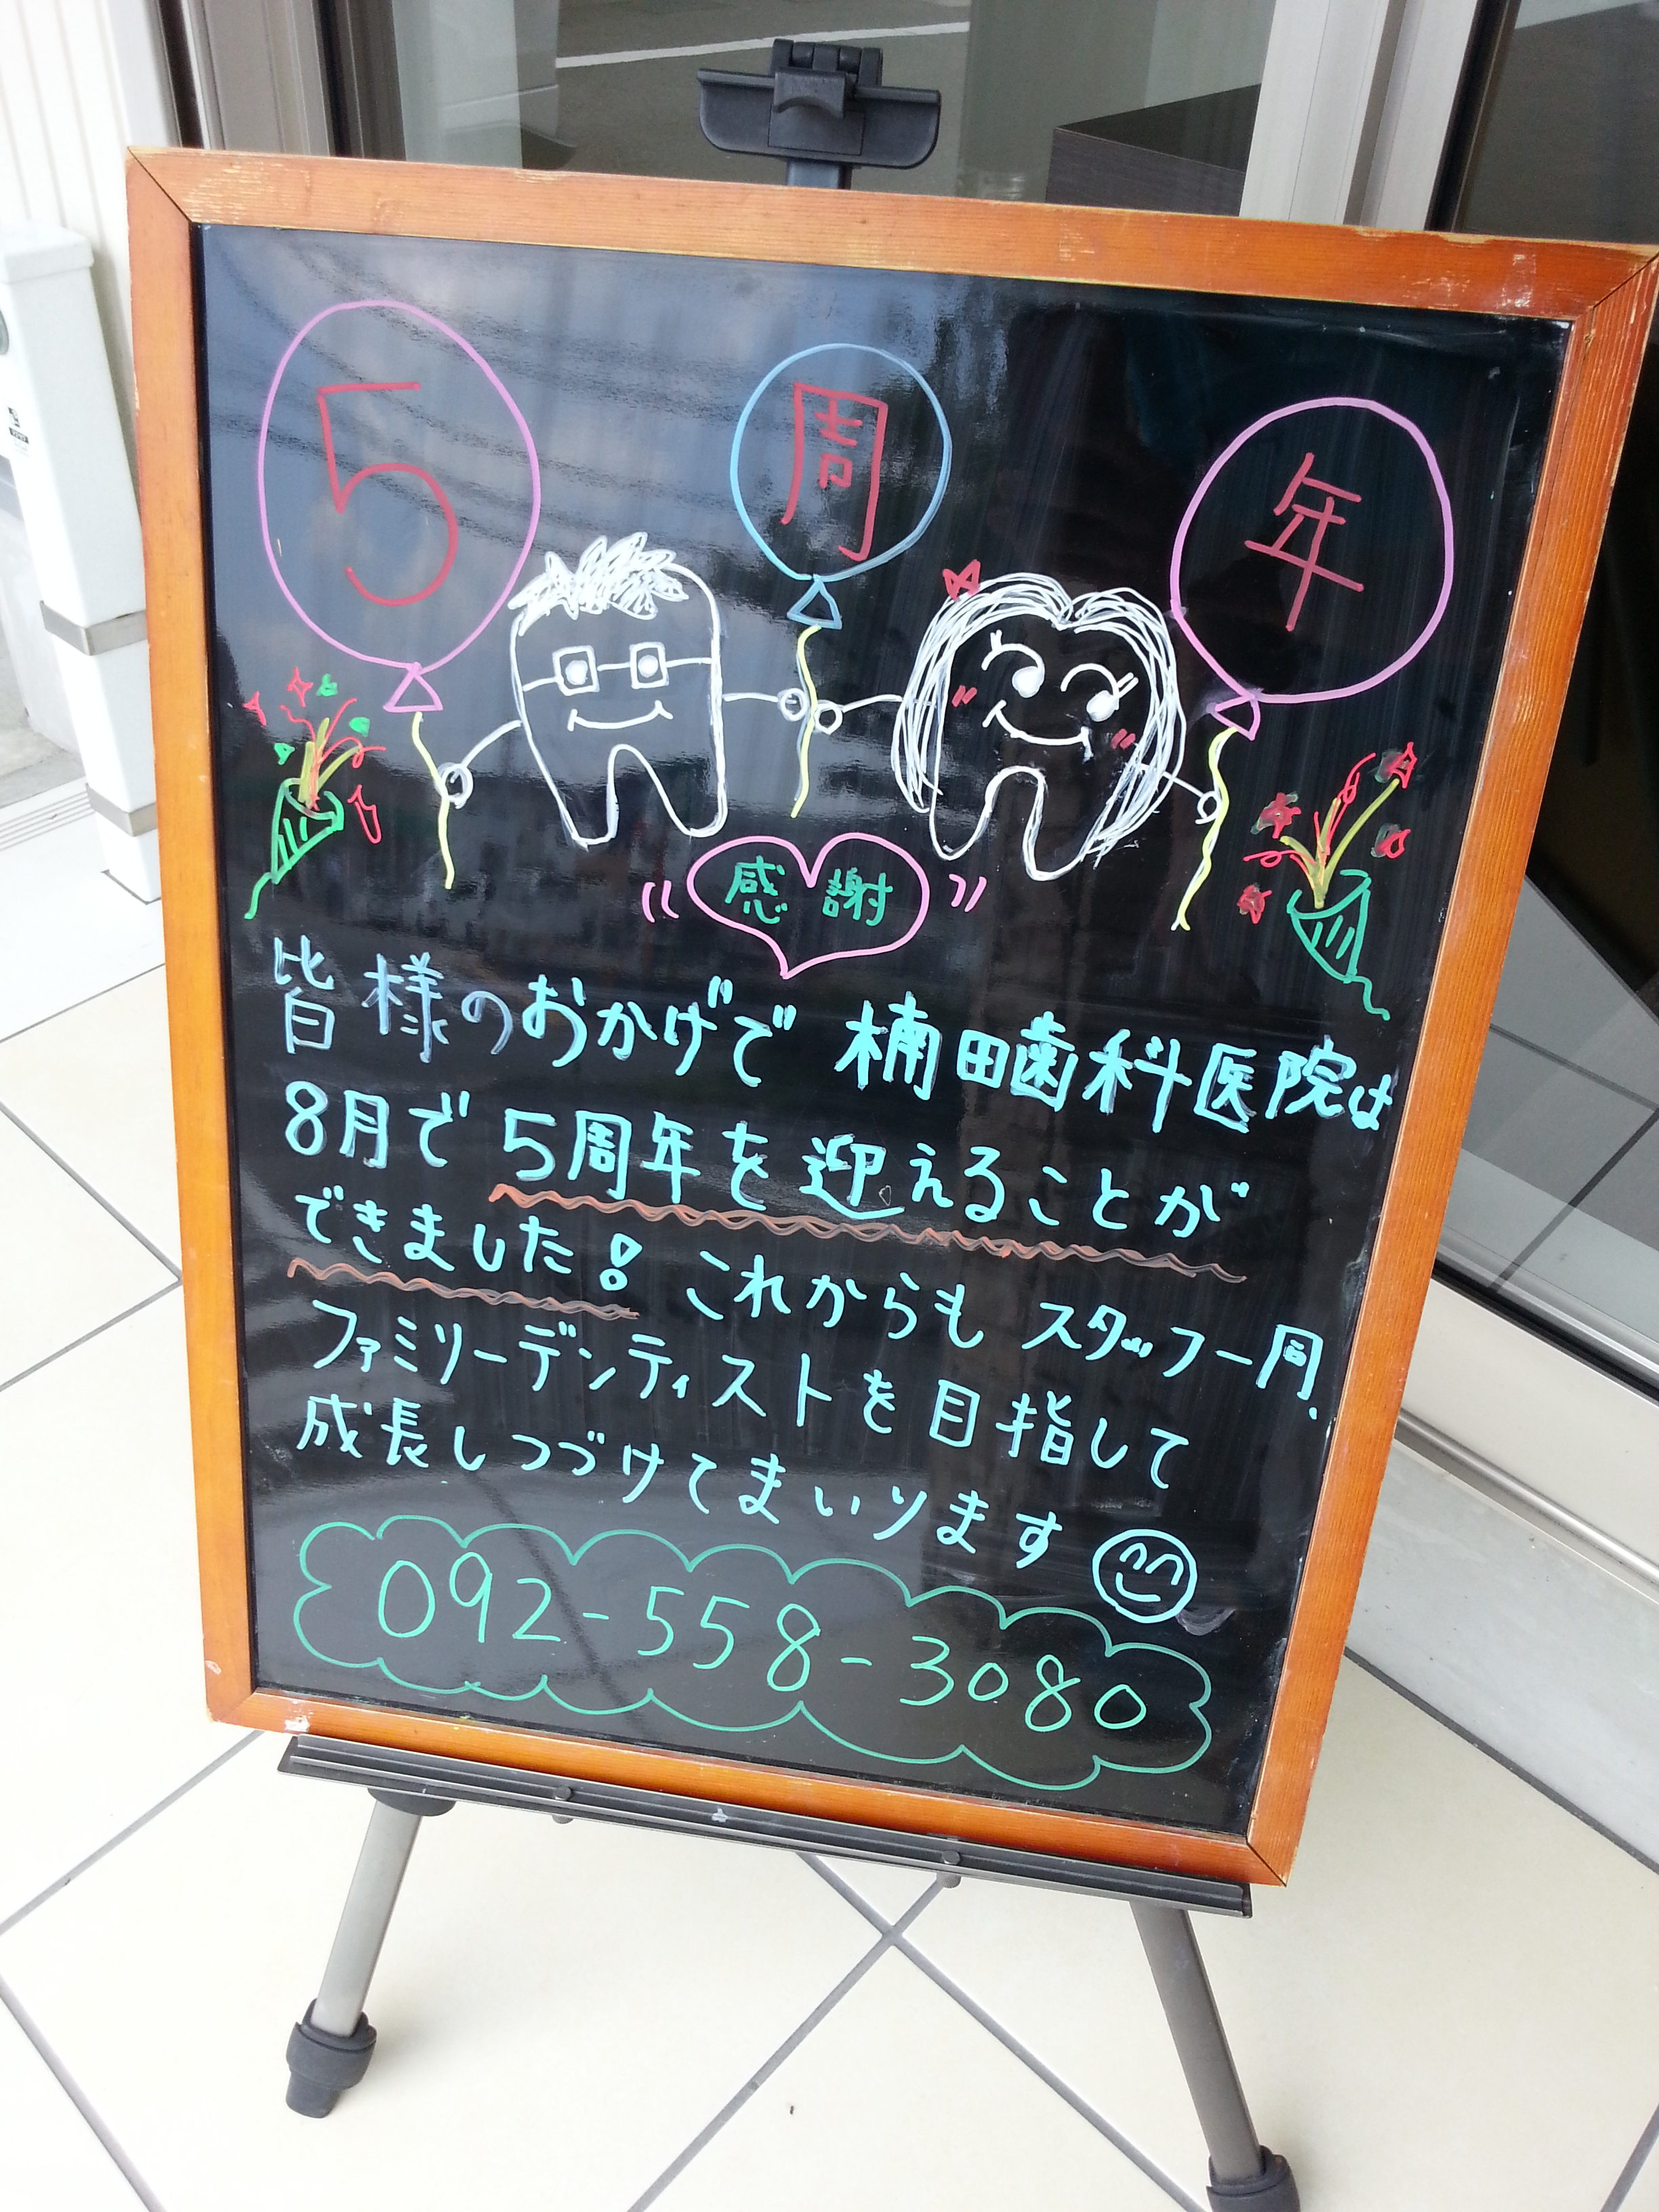 5周年
感謝
皆様のおかげで 楠田歯科医院は
8月で 5周年を迎えることが
できました! これからも スタッフ一同、
ファミリーデンティストを目指して
成長しつづけてまいります
092-558-3080